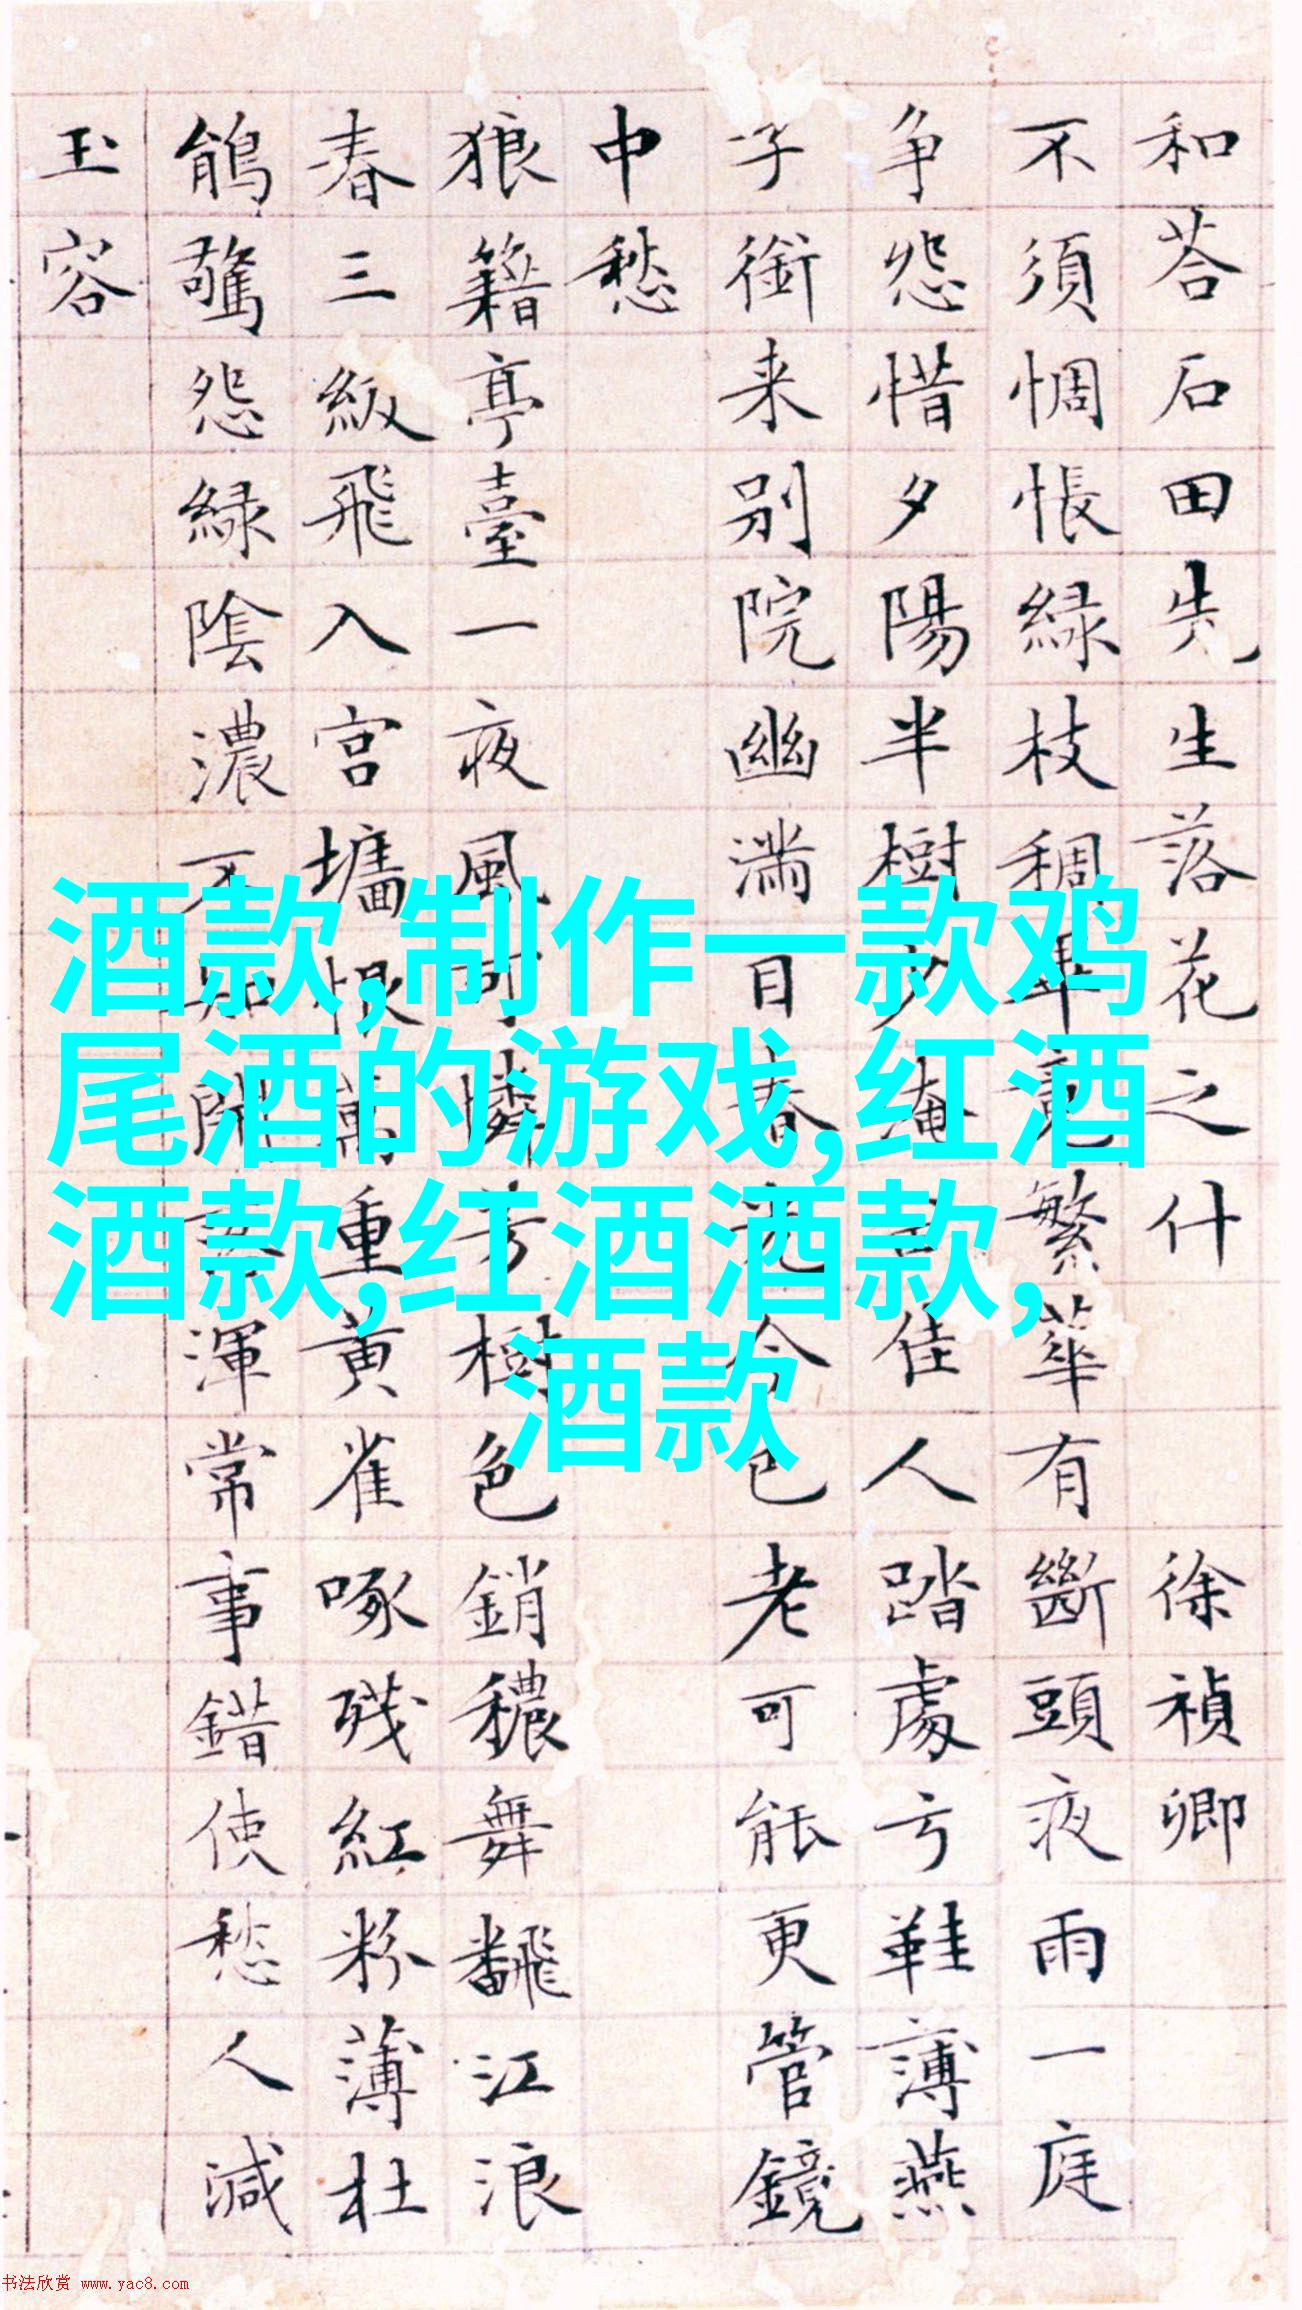 和荅石田先生落花之什 徐禎卿
不須惆悵緑枝稠畢竟繁華有斷頭夜雨一庭
争怨惜夕陽半樹少淹 佳人踏處弓鞋薄燕
子銜来别院幽満目春光今已老可能更管鏡
中愁
狼籍亭臺一夜風可憐芳樹色銷穠舞飜江浪
春三級飛入宫墻恨萬重黄雀啄残紅粉薄杜
鵑驚怨緑陰濃不知開落渾常事錯使愁人減
玉容
酒款,制作一款鸡
尾酒的游戏,红酒
酒款,红酒酒款,
酒款
书法欣赏 www.yac8.com